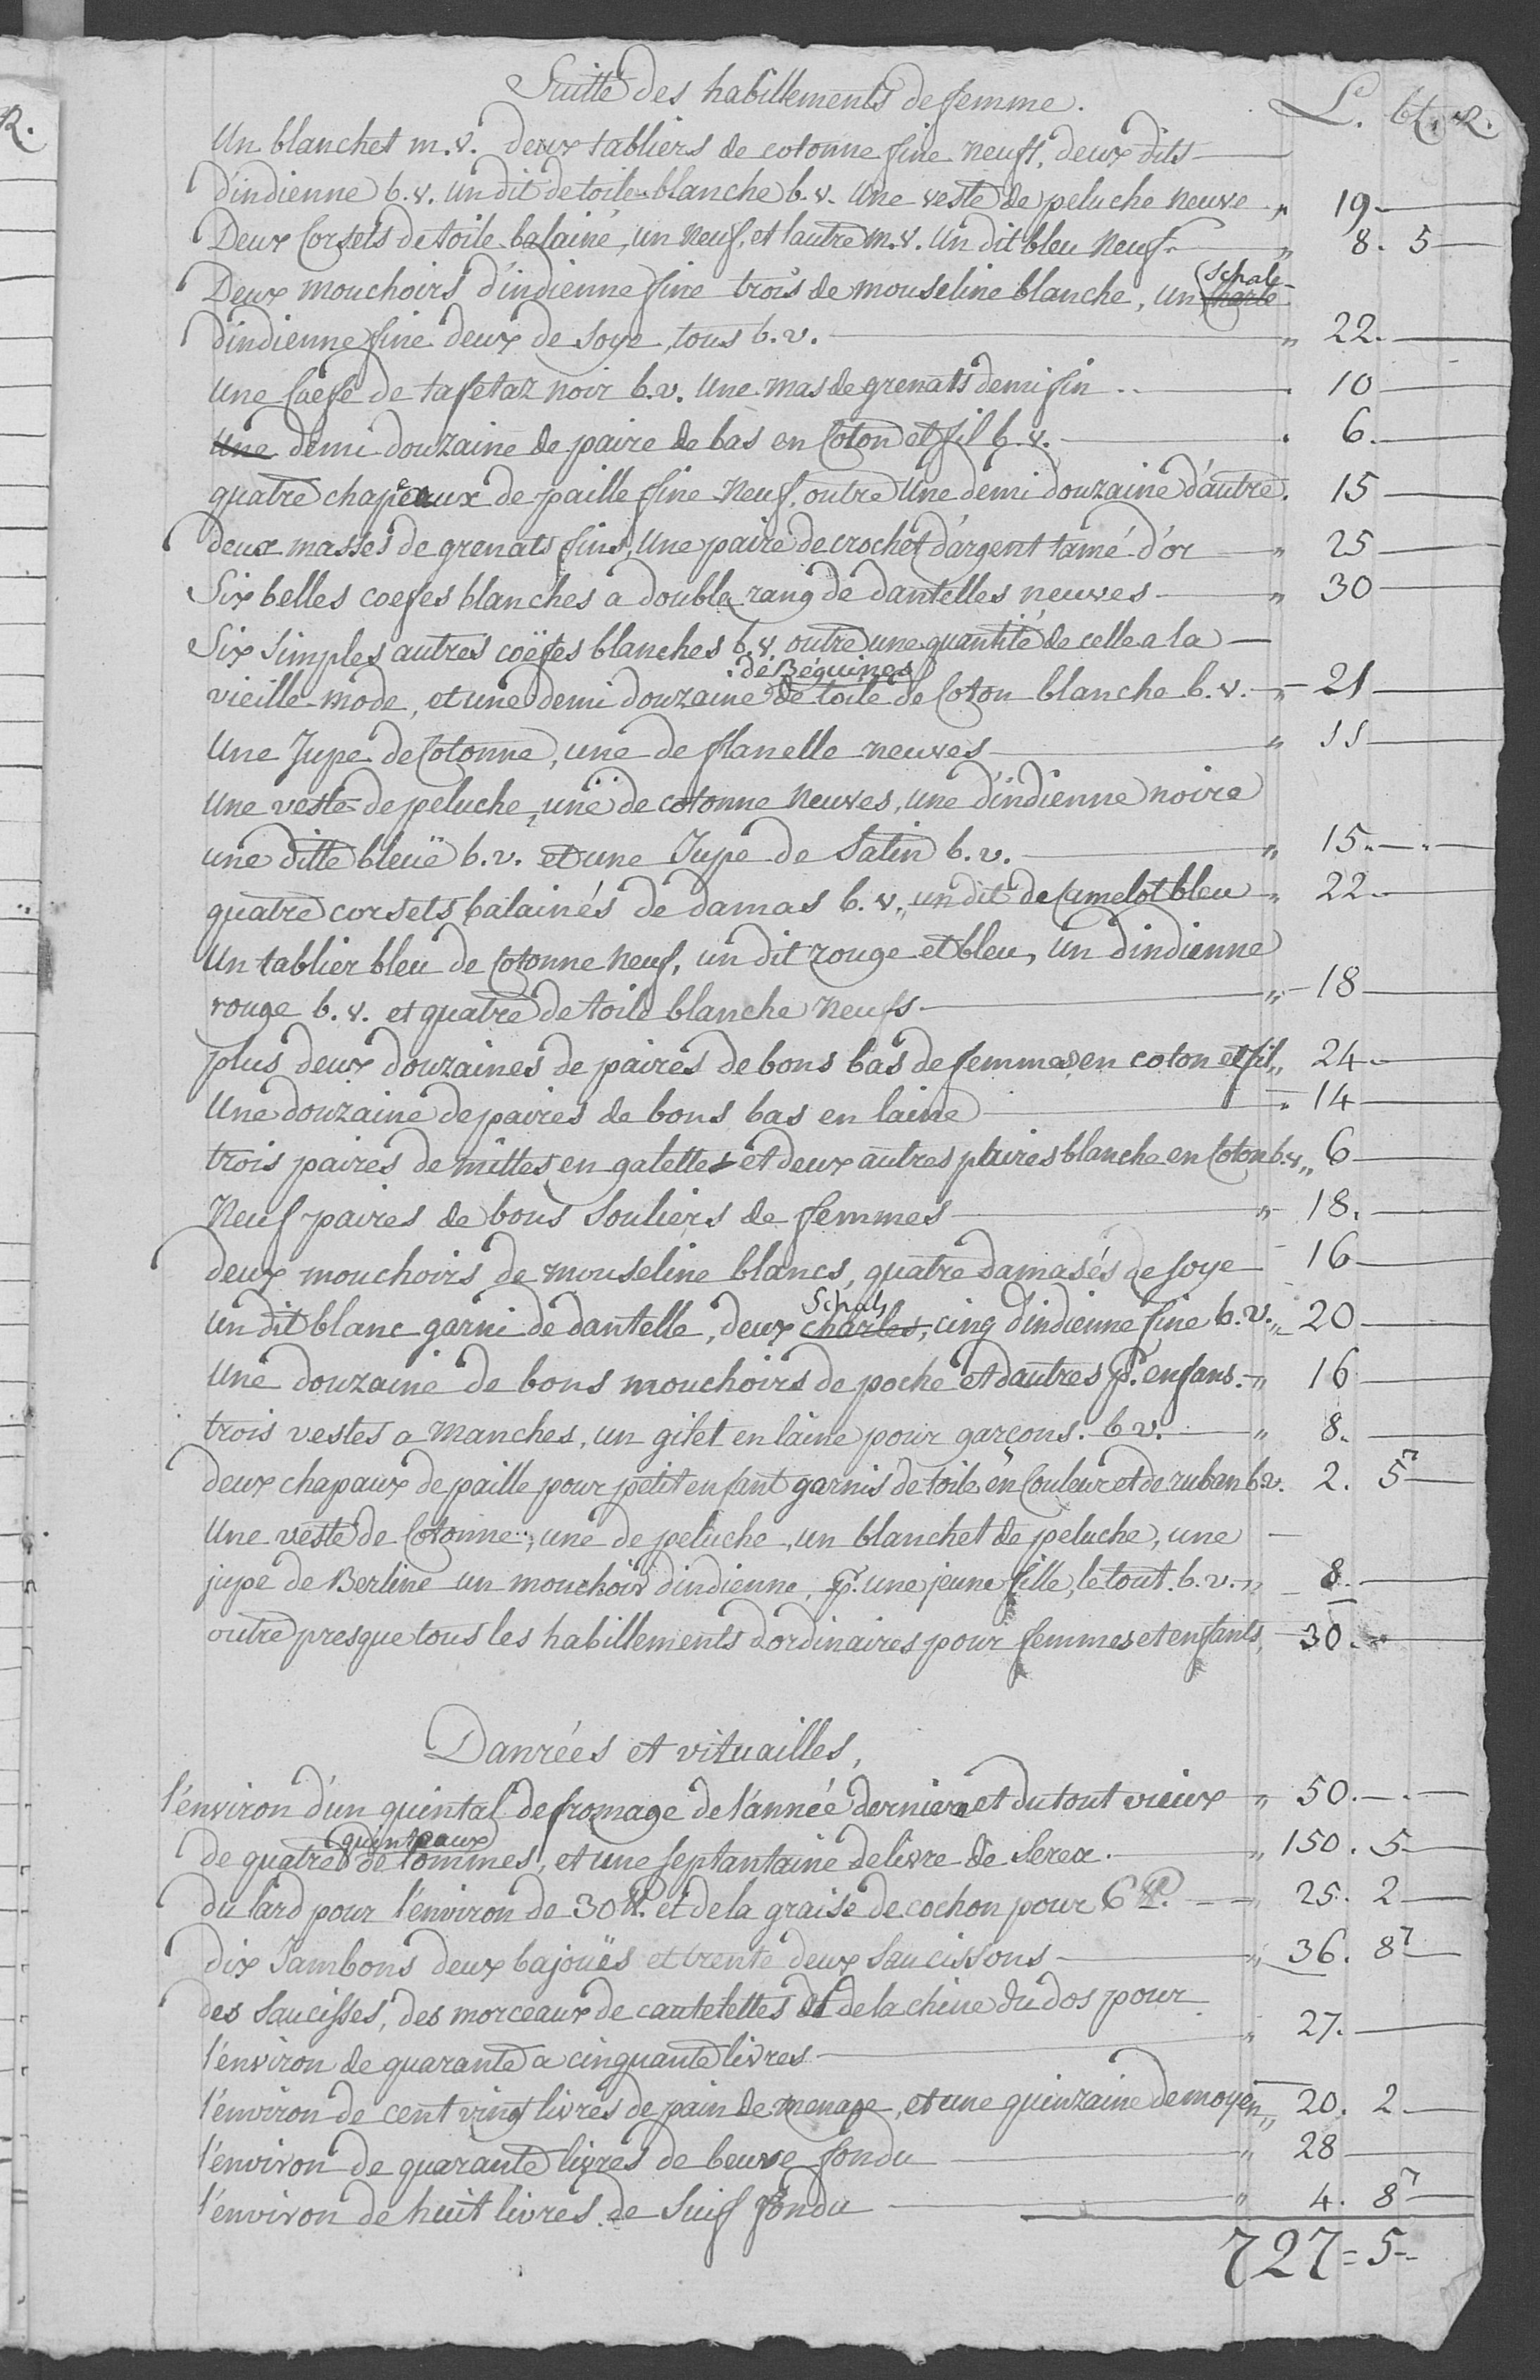 R.
Suitte des habillements de femme. L. btz. R.
Un blanchet m.v. deux tabliers de cotonne fine neufs, deux dits
d'indienne b.v. un dit de toile blanche b.v. Une veste de peluche neuve „ 19
Deux Corsets de toile balainé, un neuf, et l'autre m.v. Un dit bleu neuf „ 8. 5
schale
Deux mouchoirs d'indienne fine trois de mouseline blanche, un charle
d'indienne fine deux de Soye, tous b.v. „ 22.
Une Coefe de tafetaz noir b.v. Une mas de grenats demi fin . 10
Une demi douzaine de paire de bas en Coton et fil b.v. . 6.
quatre chapeaux de paille fine neuf, outre Une demi douzaine d'autre. 15
deux masses de grenats fins, Une paire de crochet d'argent tamé d'or „ 25
Six belles coefes blanches a double rang de dantelles neuves „ 30
Six simples autres coëfes blanches b.v. outre une quantité de celle a la
de Béguines
vieille mode, et une demi douzaine de toile de Coton blanche b.v. „ 21
Une Jupe de Cotonne, une de flanelle neuves „ 11
Une veste de peluche, une de cotonne neuves, une d'indienne noire
une ditte bleuë b.v. et une Jupe de Satin b.v. „ 15.
quatre corsets balainés de damas b.v., un dit de Camelot bleu „ 22
Un tablier bleu de Cotonne neuf, un dit rouge et bleu, un d'indienne
rouge b.v. et quatre de toile blanche neufs „ 18
plus deux douzaines de paires de bons bas de femmes en coton et fil „ 24
Une douzaine de paires de bons bas en laine „ 14
trois paires de mittes en galettes et deux autres paires blanche en Coton b.v „ 6
Neuf paires de bons Souliers de femmes „ 18.
deux mouchoirs de mouseline blancs, quatre damasés de soye 16
Schals
un dit blanc garni de dantelle, deux charles, cinq d'indienne fine b.v. „ 20
Une douzaine de bons mouchoirs de poche et d'autres pr. enfans. „ 16
trois vestes a manches, un gilet en laine pour garçons. b.v. „ 8.
deux chapaux de paille pour petit enfant garnis de toile en Couleur et de ruban b.v. 2. 5
Une veste de Cotonne, une de peluche, un blanchet de peluche, une
jupe de Berline un mouchoir d'indienne, pr. une jeune fille, le tout b.v. „ 8.
outre presque tous les habillements d'ordinaires pour femmes et enfants, 30.
Danrées et vituailles,
l'environ d'un quintal de fromage de l'année derniere et du tout vieux „ 50.
quintaux
de quatre de tommes, et une septantaine de livre de Serex. „ 150. 5
du lard pour l'environ de 30 ℔. et de la graise de cochon pour 6 ℔. „ 25. 2
dix Jambons deux bajoües et trente deux Saucissons „ 36. 8
des Saucisses, des morceaux de cautelettes et de la chine du dos pour
l'environ de quarante a cinquante livres „ 27.
l'environ de cent vingt livres de pain de menage, et une quinzaine de moyen „ 20. 2
l'environ de quarante livres de beurre fondu „ 28
l'environ de huit livres de Suif fondu „ 4. 8
727 = 5